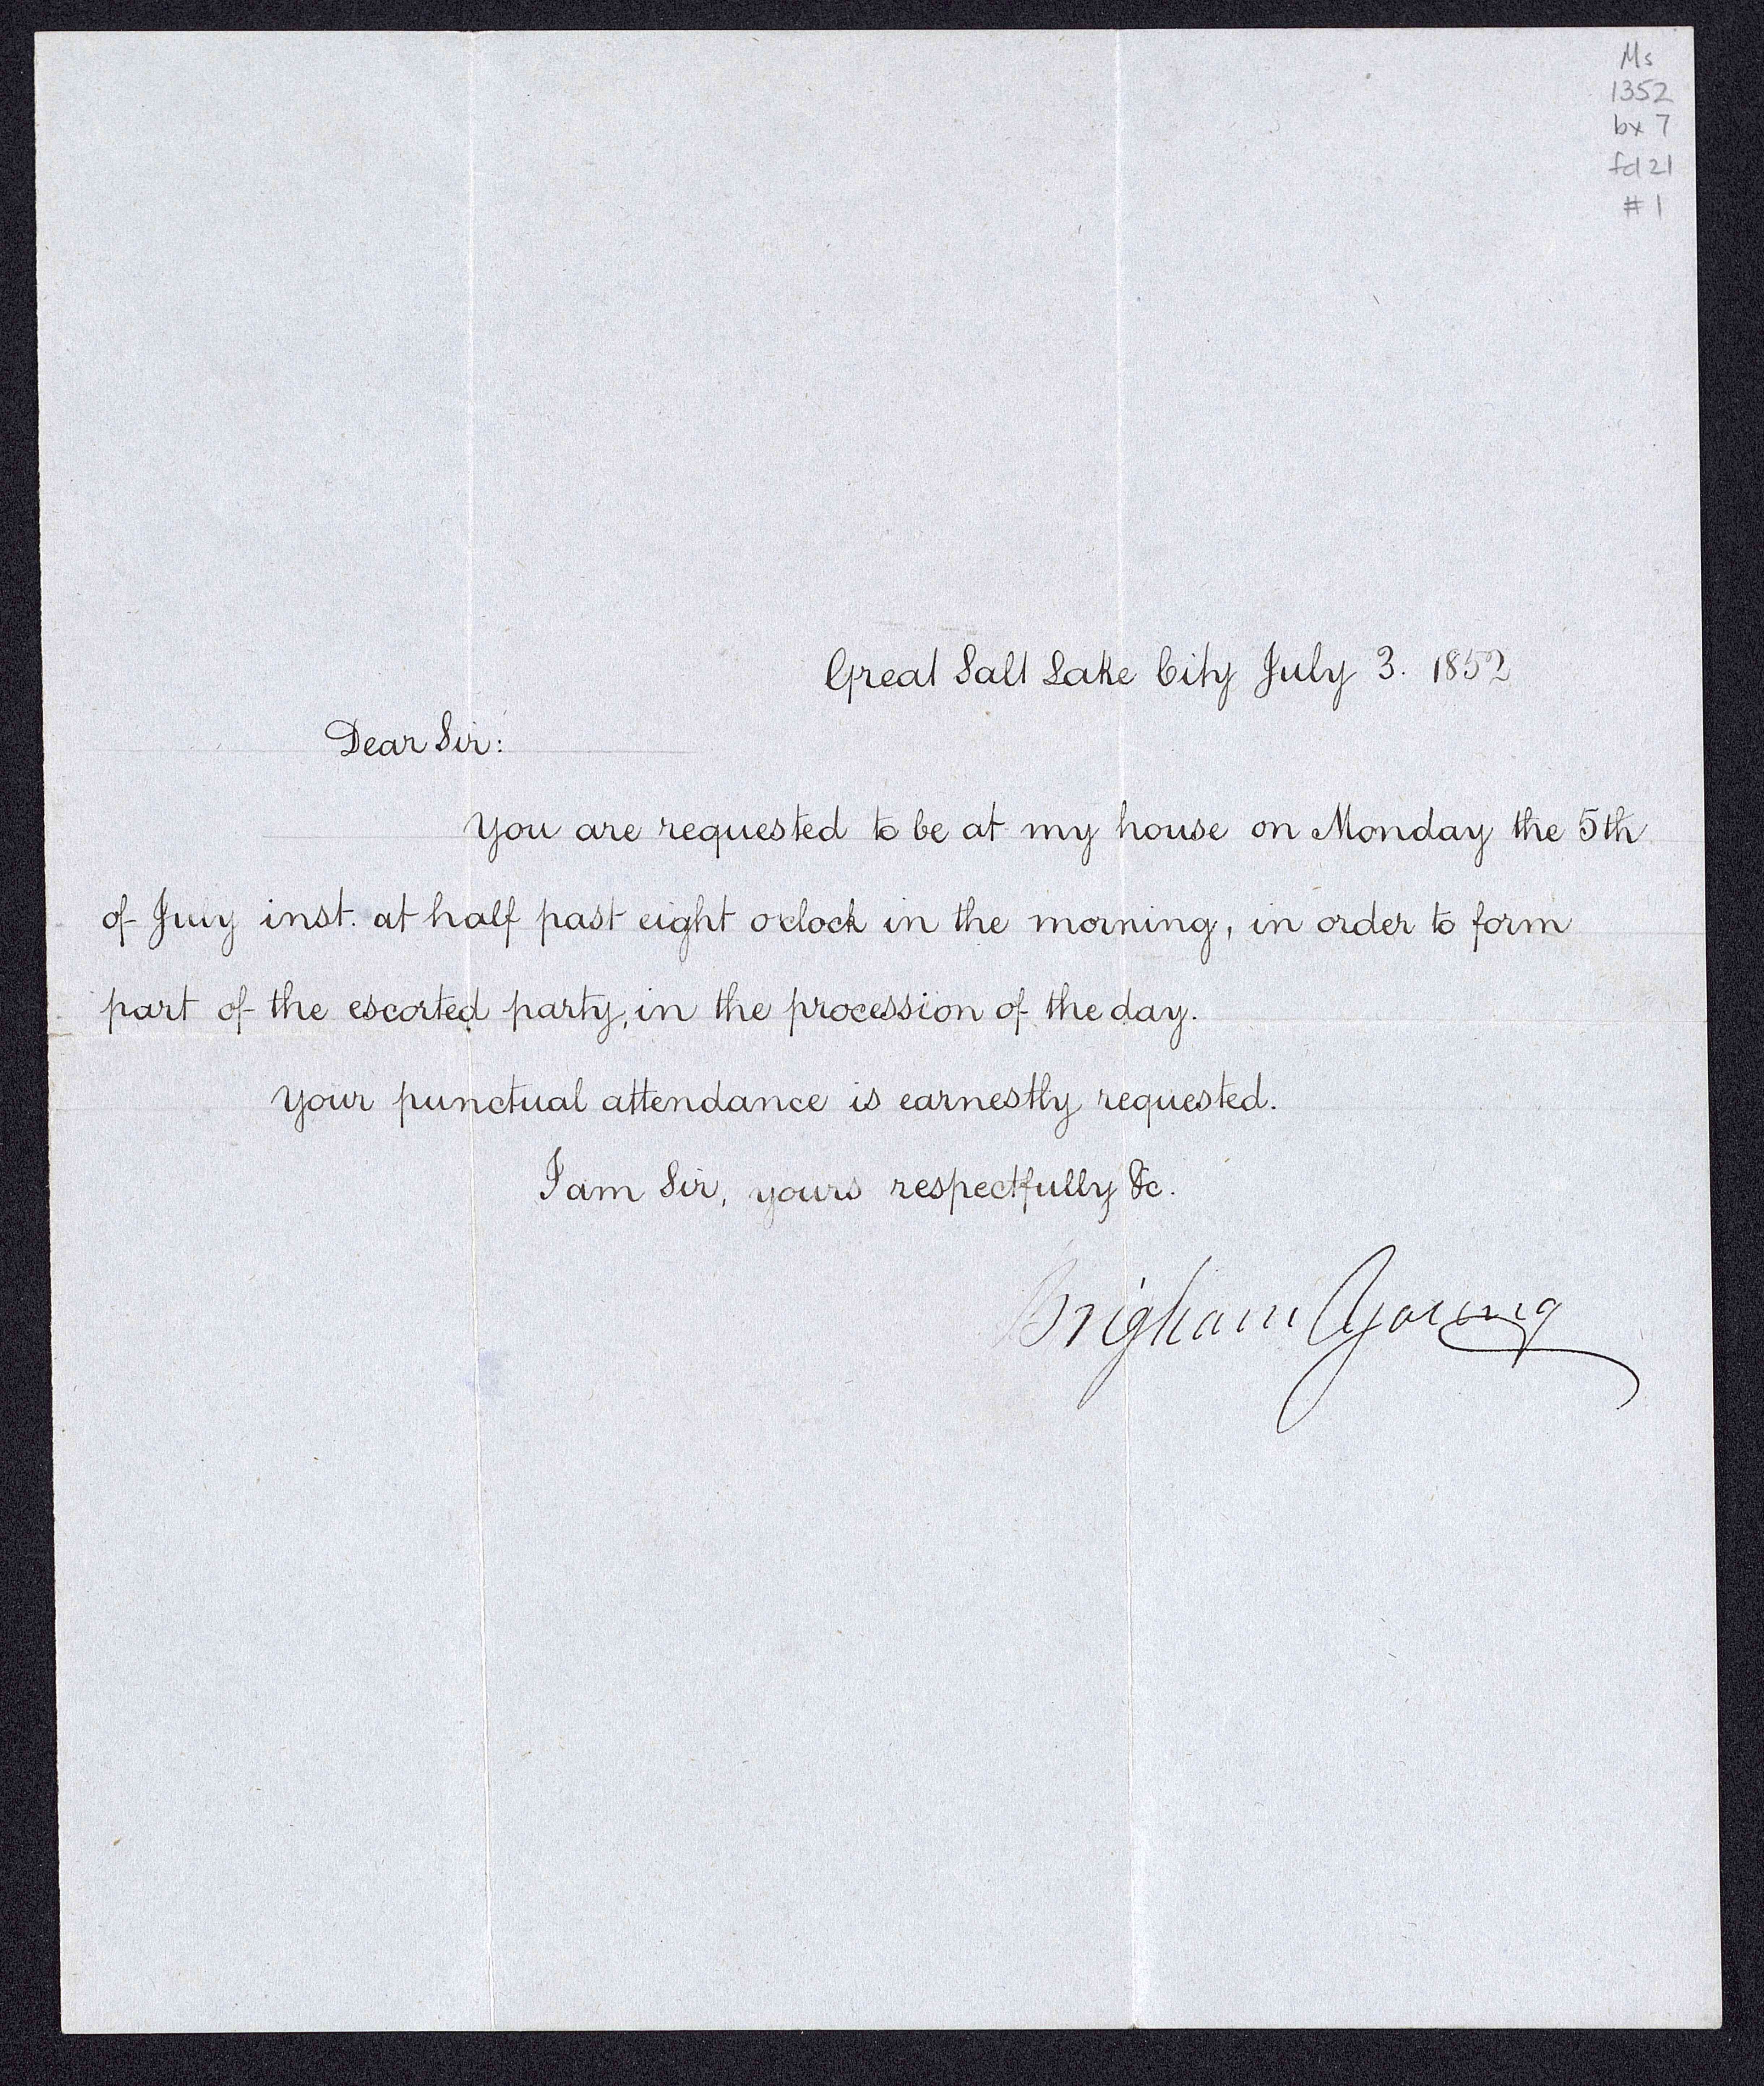 Ms
1352
bx 7
fd 21
# 1
Great Salt Lake City July 3. 1852
Dear Sir:
You are requested to be at my house on Monday the 5th
of July inst. at half past eight oclock in the morning, in order to form
part of the escorted party, in the procession of the day.
Your punctual attendance is earnestly requested.
I am Sir, yours respectfully &c.
Brigham Young